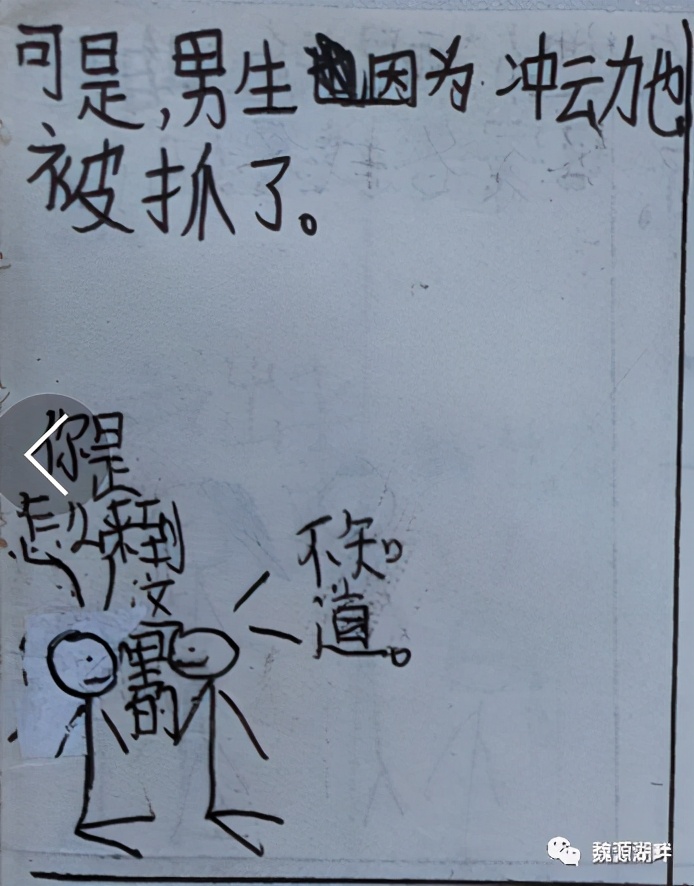 可是,男生因为冲动也
被抓了。
你是
怎么来到
这
里的
不知
道。
魏源湖畔